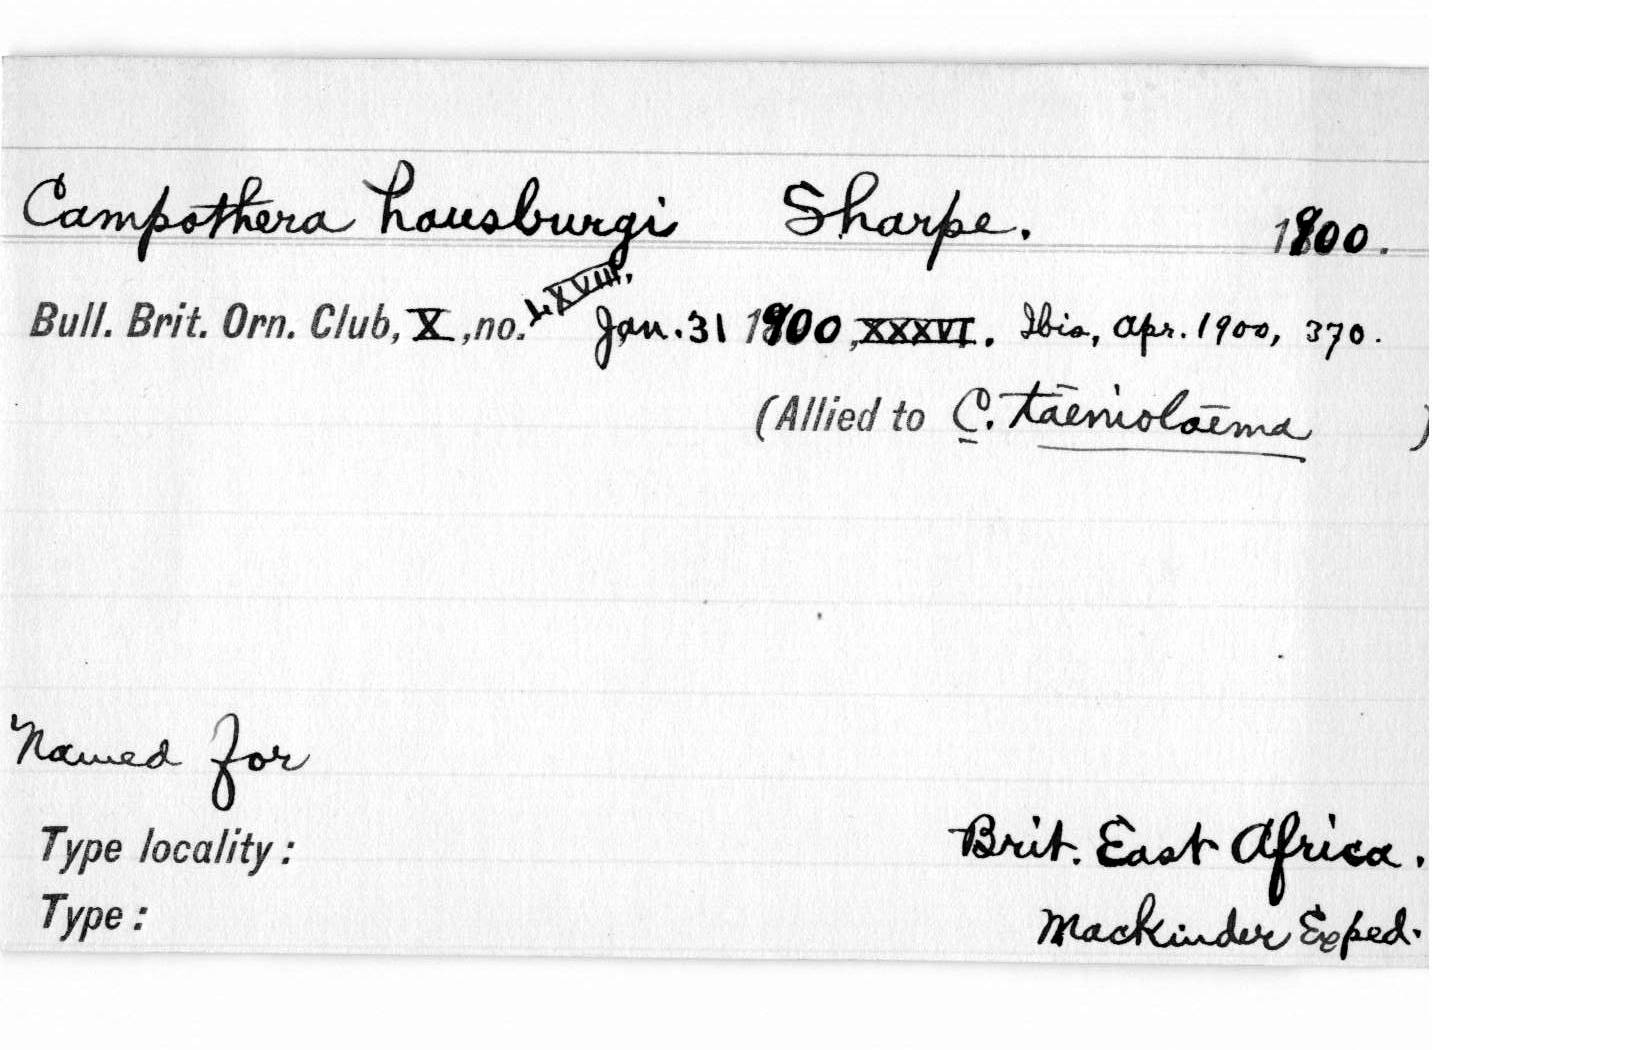 Campothera hausburgi Sharpe. 1900.
Bull. Brit. Orn. Club, X, no. LXVIII. Jan. 31 1900, XXXVI. Ibis, Apr. 1900, 370.
(Allied to C. taeniolaema )
Named for
Type locality: Brit. East Africa.
Type: Mackinder Exped.